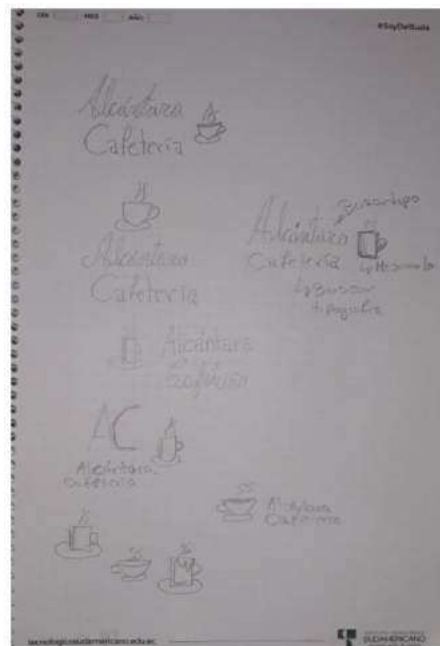 DÍA MES AÑO
#SoyDelSuda
Alcántara
Cafetería
Alcántara
Cafetería
Buscar tipo
Alcántara
Cafetería
↳ Buscar
tipografía
Alcántara
AC
Alcántara
Cafetería
Cafetería
tecnologicosudamericano.edu.ec
SUDAMERICANO